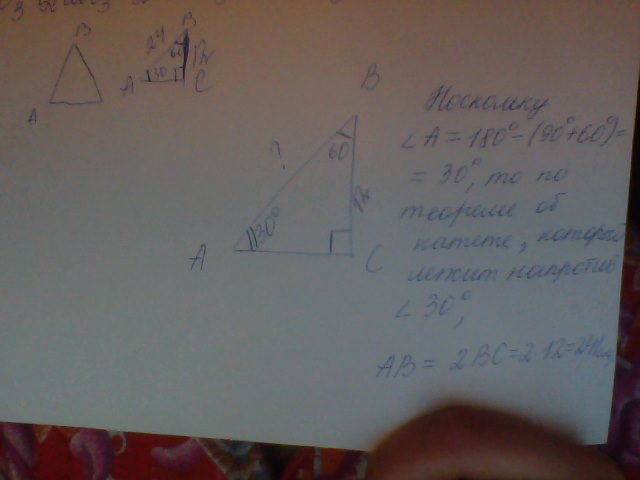 B
A
B
24
60
12
A
30
C
B
60
?
12
30°
A
C
Поскольку
∠A = 180° - (90° + 60°) =
= 30°, то по
теореме об
катете, который
лежит напротив
∠ 30°,
AB = 2BC = 2·12 = 24